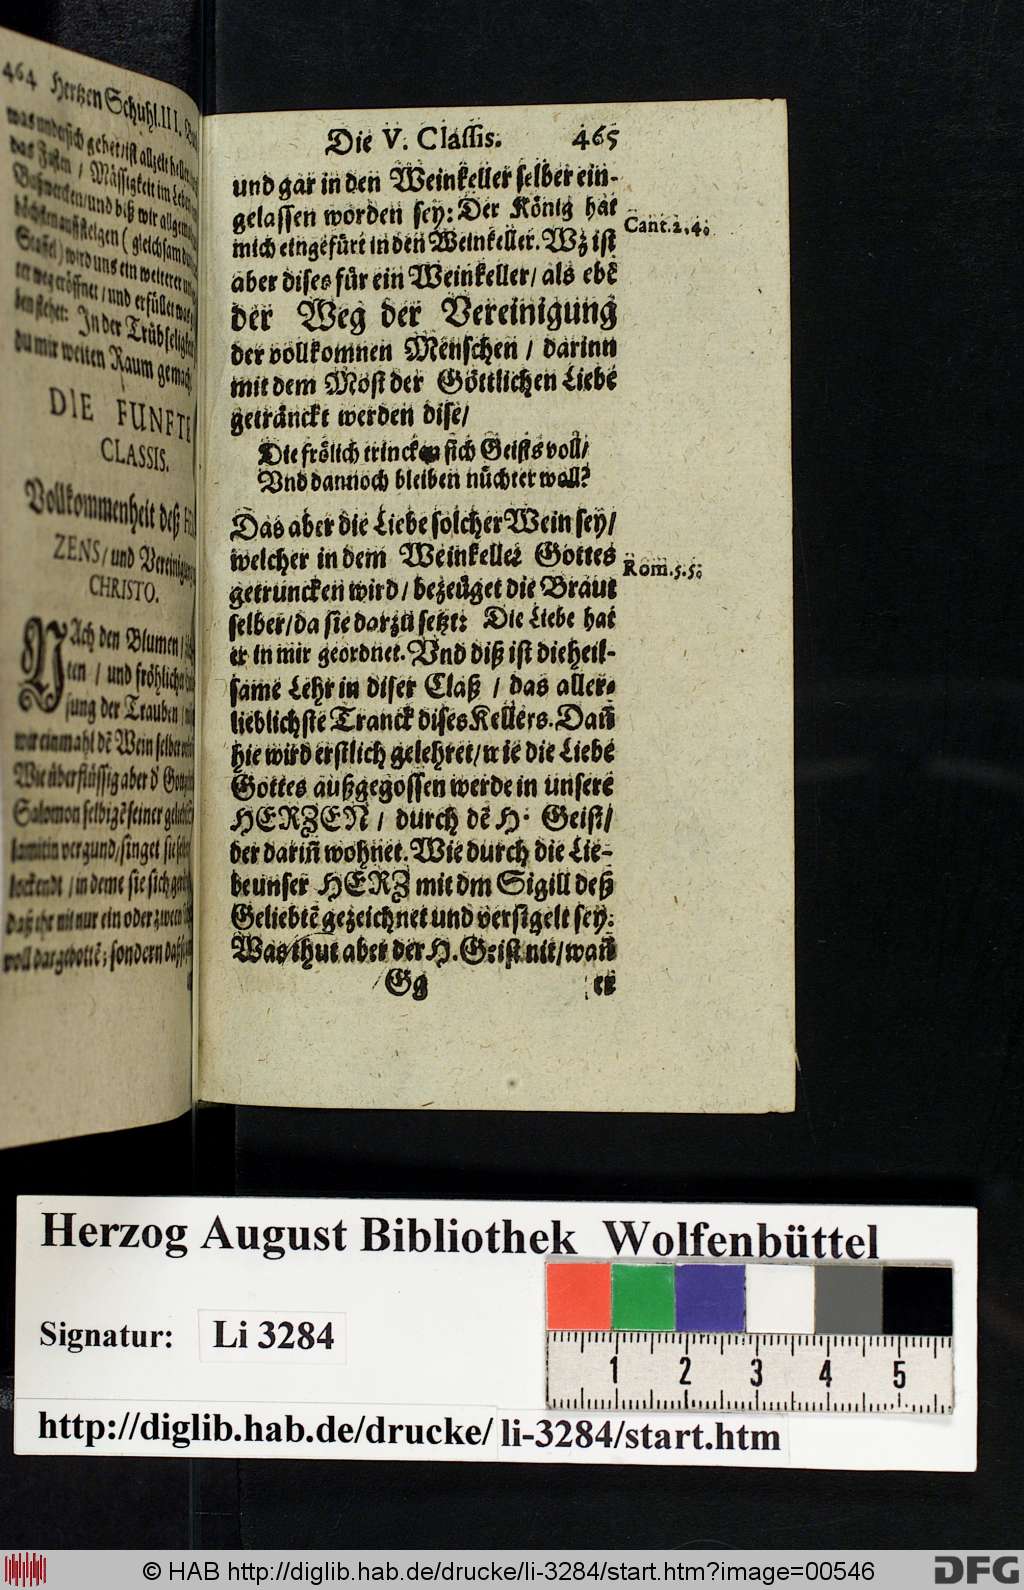 464 Hertzen Schuhl. III.
was undersich gehet/ ist allzeit heller
das Fasten / Mässigkeit im Leben
Bußwercken/ und biß wir allgemach
höchsten auffsteigen ( gleichsam durch
Staffel) wird uns ein weiterer
ter weg eröffnet/ und erfüllet was
ben stehet: In der Trübseligkeit
du mir weiten Raum gemacht
DIE FUNFTE
CLASSIS.
Vollkommenheit deß
ZENS/ und Vereinigung
CHRISTO.
NAch den Blumen/
ten / und fröhlicher
sung der Trauben /
wir einmahl dē Wein selber
Wie überflüssig aber d'
Salomon selbizē seiner
vergund/ singet sie
lockendt / in deme sie sich
daß ihr nit nur ein oder zween
voll dargebottē; sondern daß
Die V. Classis. 465
und gar in den Weinkeller selber ein-
gelassen worden sey: Der König hat
mich eingefürt in den Weinkeller. Wz ist
Cant. 2. 4.
aber dises für ein Weinkeller/ als ebē
der Weg der Vereinigung
der vollkomnen Menschen / darinn
mit dem Most der Göttlichen Liebe
getränckt werden dise/
Die frölich trincken sich Geists voll/
Vnd dannoch bleiben nüchter woll?
Das aber die Liebe solcher Wein sey/
welcher in dem Weinkeller Gottes
Rom. 5. 5.
getruncken wird / bezeüget die Braut
selber/ da sie darzu setzt: Die Liebe hat
er in mir geordnet. Vnd diß ist die heil-
same Lehr in diser Claß / das aller-
lieblichste Tranck dises Kellers. Dañ
hie wird erstlich gelehret/ wie die Liebe
Gottes außgegossen werde in unsere
HERZEN / durch dē H. Geist/
der dariñ wohnet. Wie durch die Lie-
be unser HERZ mit dm Sigill deß
Geliebtē gezeichnet und versigelt sey:
Was thut aber der H. Geist nit/ wañ
Gg er
Herzog August Bibliothek Wolfenbüttel
Signatur: Li 3284
1 2 3 4 5
http://diglib.hab.de/drucke/ li-3284/start.htm
© HAB http://diglib.hab.de/drucke/li-3284/start.htm?image=00546
DFG